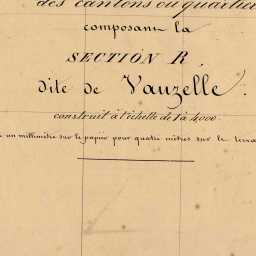 des cantons ou quartier
composant la
SECTION R,
dite de Vauzelle.
construit à l'échelle de 1 à 4000
un millimètre sur le papier pour quatre mètres sur le terra